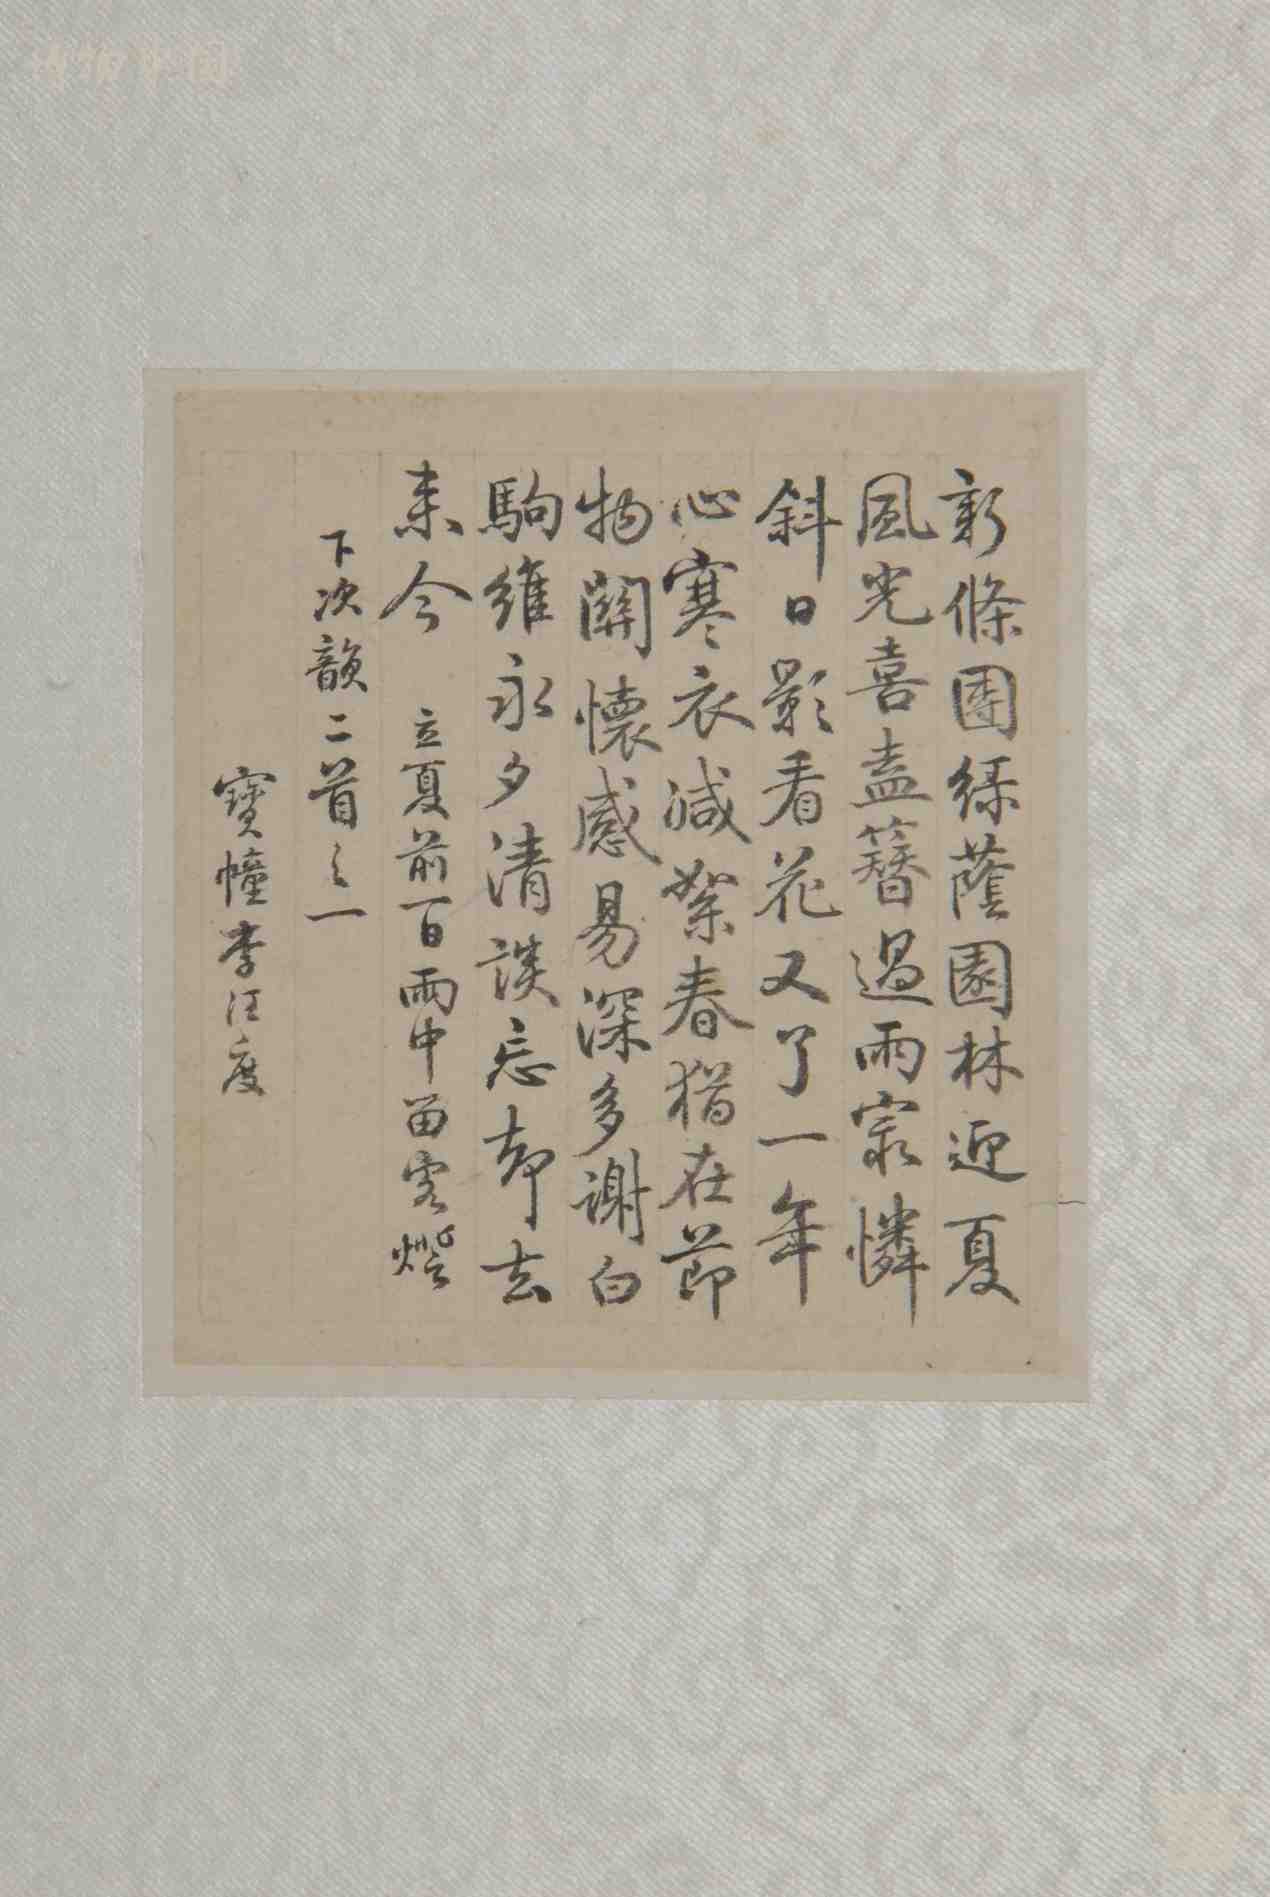 新條團綠蔭園林迎夏
風光喜盍簪過雨㝡憐
斜日影看花又了一年
心寒衣減絮春猶在節
物關懷感易深多謝白
駒維永夕清談忘却去
来今 立夏前一日雨中留客燈
下次韻二首之一
寶幢李汪度